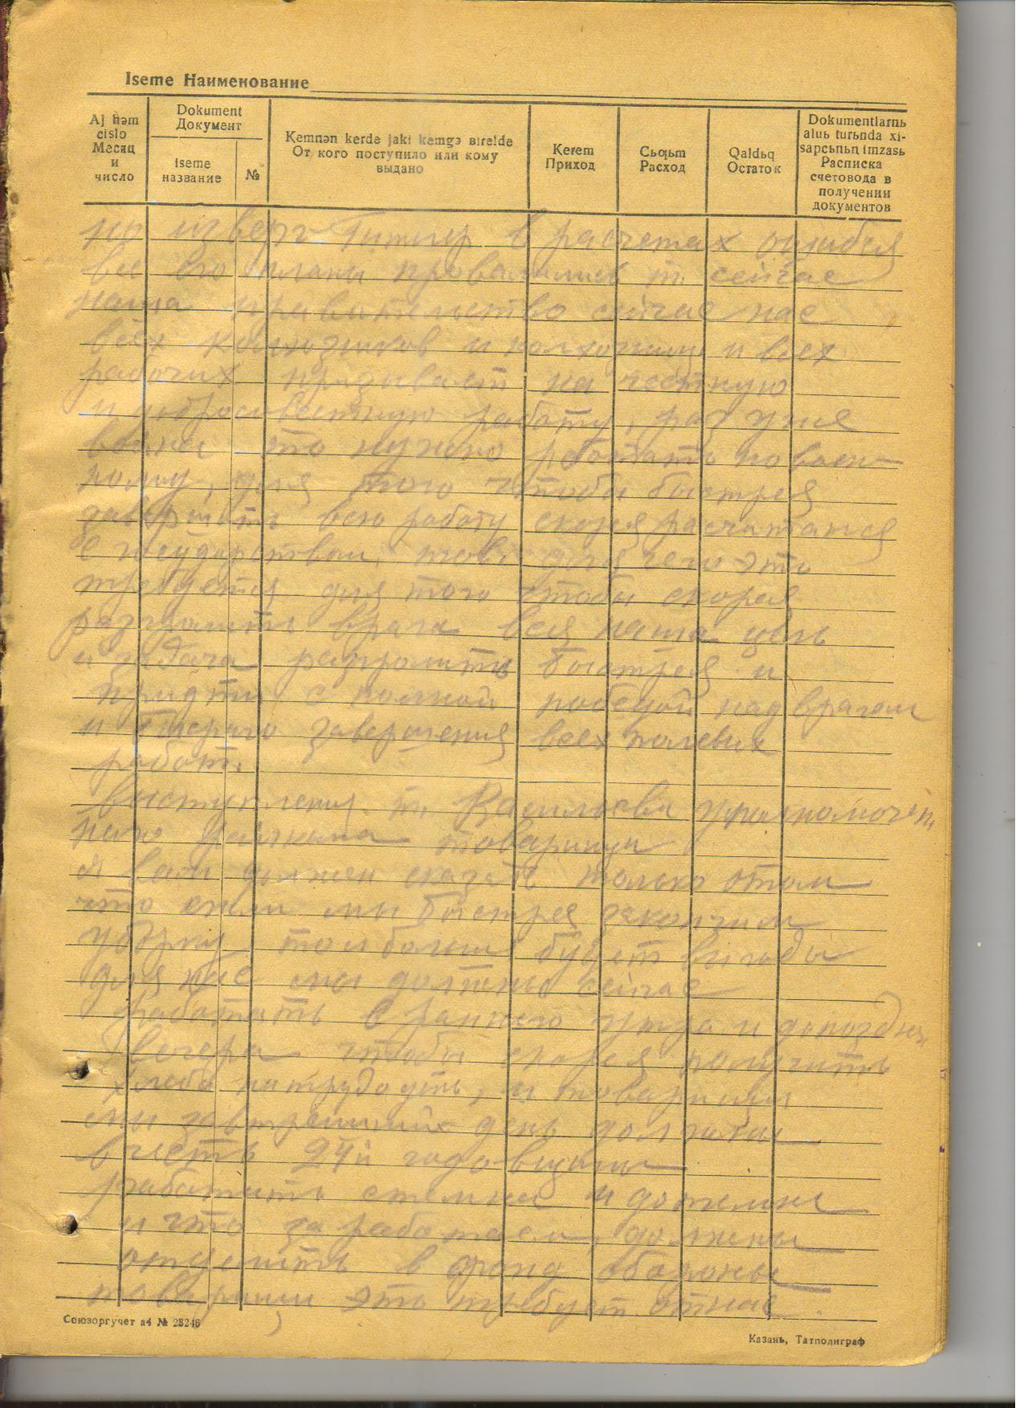 Iseme Наименование
Aj həm cislo Месяц и число
Dokument Документ
Iseme название
№
Kemnən kerde jaki kemgə birelde От кого поступило или кому выдано
Kerem Приход
Cьƣьm Расход
Qaldьq Остаток
Dokumentlarnь alub turьnda xisapcьnьn imzasь Расписка счетовода в получении документов
но изверг Гитлер в расчетах ошибся
все его планы провалились т. сейчас
наша правительство сейчас нас
всех колхозников и колхозниц и всех
рабочих призывает на честную
и добросовестную работу, раз уже
война то нужно работать по воен
ному, для того чтобы быстрея
завершить всю работу скорея расчитатся
с государством, тов. для чего это
требуется для того чтобы скорея
разгромить врага вся наша цель
и задача разгромить быстрея и
придти с полной победой над врагом
и скорого завершения всех полевых
работ.
Выступления т. Васильева уполномочен
ного райкома товарищи
я вам должен сказать только отом
что если мы быстрея закончим
уборку, то и больше будет выгоды
для нас мы должны сейчас
работать с раннего утра и допоздна
вечера чтобы скорея получить
хлеба на трудодень, и товарищи
мы завтрешний день должны
в честь 24й годовщины
работать стемна и дотемна
и что заработаем должны
отделить в фонд обороны
товарищи это требует отнас
Союзоргучет а4 № 28246
Казань, Татполиграф